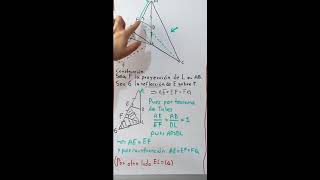 Construcción
Sea F la proyección de L en AB
Sea G la reflección de E sobre F.
⇒ AE = EF = FG
Pues por teorema
de Tales
AE/EF = AD/DL = 1
pues AD=DL
⇒ AE = EF
y por construcción AE=EF=FG
(Por otro lado EL=LG)